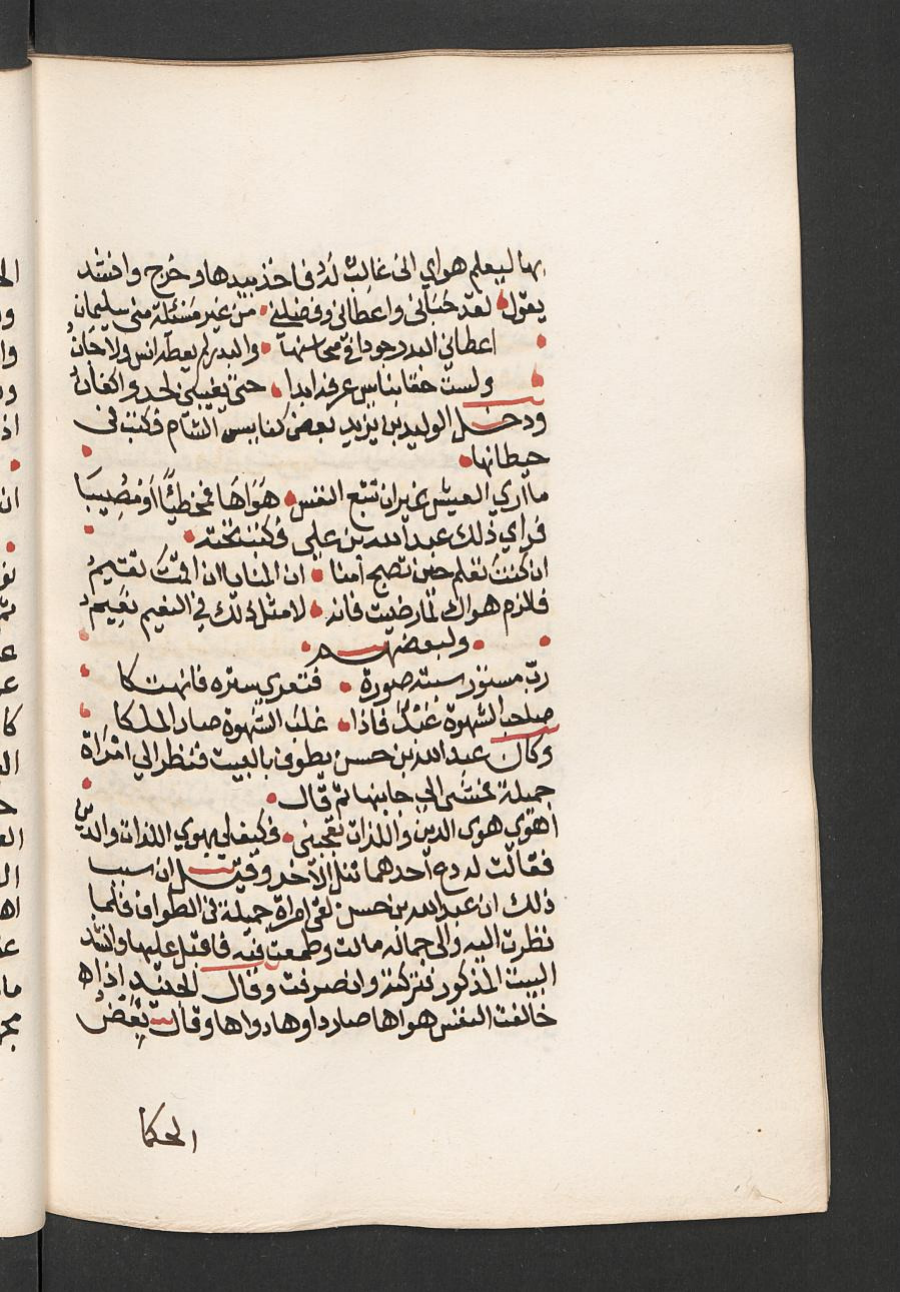 بها ليعلم هواي انى غالب له فاخذ بيدها وخرج وانشد
يقول لقد حبانى واعطانى وفضلنى من غير مسئلة منى سليمان
اعطانى البدر جودا فى محاسنها والبدر لم يعطه انس ولا جان
ولست حقا بناس عرفه ابدا حتى يغيبنى لحد واكفان
ودخل الوليد بن يزيد بعض كنايس الشام فكتب فى
حيطانها
ما ارى العيش غير ان تتبع النفس هَوَاهَا فمخطيًّا اَوْ مُصِيبَا
فراى ذلك عبد الله بن على فكتب تحته
ان كنت تعلم حين تصبح آمنا ان المنايا ان اقمت تقيم
فلازم هواك لما رضيت فانه لا مثل ذلك في النعيم نعيم
ولبعضهم
ربّ مستور سبته صورة فتعرى ستره فانهتكا
صاحب الشهوة عَبْدٌ فاذا غلب الشهوة صار الملكا
وكان عبد الله بن حسن يطوف بالبيت فنظر الى امْرَاة
جميلة فمشى الى جانبها ثم قال
اهوى هوى الدين واللذات تعجبنى فكيف لى بهوى اللذات والدين
فقالت له دع احدهما تنل الآخر وقيل ان سبب
ذلك ان عبد الله بن حسن لقى امراة جميلة فى الطواف فلما
نظرت اليه والى جماله مالت وطمعت فيه فاقبل عليها وانشد
البيت المذكور فتركته وانصرفت وقال الجنيد اذا
خالفت النفس هواها صار داوها دواها وقال بَعْضُ
الحكما